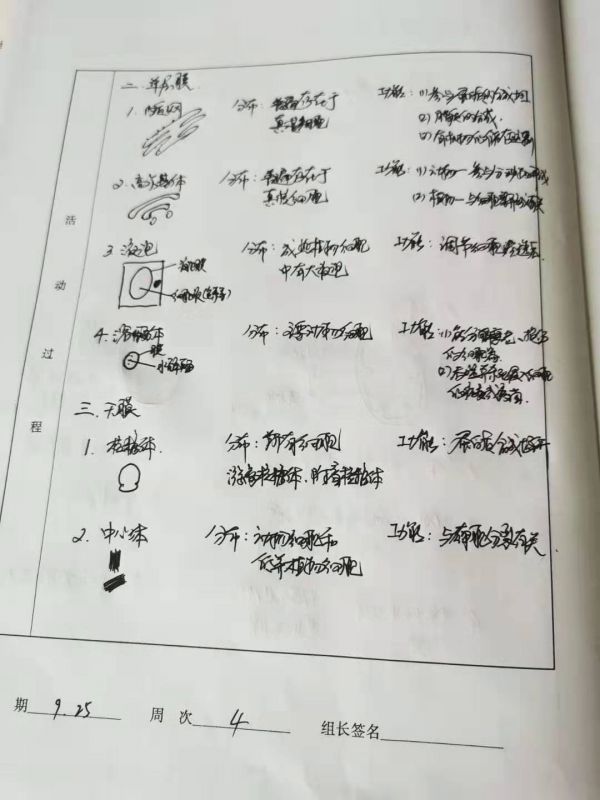 活动过程
二、单层膜
1. 内质网 分布：普遍存在于真核细胞 功能：(1) 参与蛋白质的合成加工
(2) 脂质的合成
2. 高尔基体 分布：普遍存在于真核细胞 功能：(1) 动物—参与分泌物形成
(2) 植物—与细胞壁形成有关
3. 液泡 分布：成熟植物细胞中有大液泡 功能：调节细胞
液泡膜
细胞液
4. 溶酶体 分布：动物细胞 功能：(1) 能分解衰老、损伤的细胞器
膜
水解酶
(2)
三、无膜
1. 核糖体 分布：所有细胞 功能：蛋白质合成场所
游离核糖体、附着核糖体
2. 中心体 分布：动物细胞和低等植物细胞 功能：与有丝分裂有关
期 9.25 周次 4 组长签名